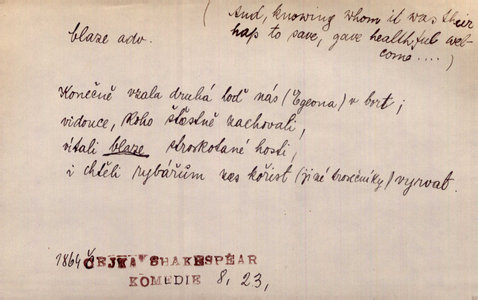 (And, knowing whom it was their
hap to save, gave healthful wel-
come....)
blaze adv.
Konečně vzala druhá loď nás (Egeona) v brt;
vidouce, koho šťastně zachovali,
vítali blaze troskotané hosti,
i chtěli rybářům vzs kořist (jiné trosečníky) vyrvat.
1864 ČEJKA SHAKESPEAR
KOMEDIE 8, 23,